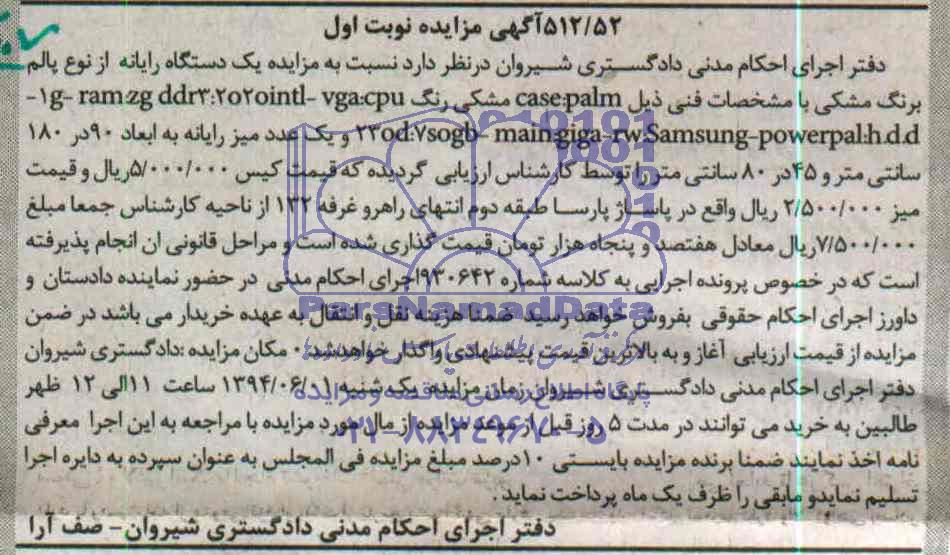 ۵۱۲/۵۲آگهی مزایده نوبت اول
دفتر اجرای احکام مدنی دادگستری شیروان درنظر دارد نسبت به مزایده یک دستگاه رایانه از نوع پالم
برنگ مشکی با مشخصات فنی ذیل case:palm مشکی رنگ ۱g- ram:zg ddr۳:۲o۲ointl- vga:cpu-
۲۳od:۷sogb- main:giga-rw:Samsung-powerpal:h.d.d و یک عدد میز رایانه به ابعاد ۹۰در ۱۸۰
سانتی متر و ۴۵در ۸۰ سانتی متر را توسط کارشناس ارزیابی گردیده که قیمت کیس ۵/۰۰۰/۰۰۰ریال و قیمت
میز ۲/۵۰۰/۰۰۰ ریال واقع در پاساژ پارسا طبقه دوم انتهای راهرو غرفه ۱۳۲ از ناحیه کارشناس جمعا مبلغ
۷/۵۰۰/۰۰۰ریال معادل هفتصد و پنجاه هزار تومان قیمت گذاری شده است و مراحل قانونی ان انجام پذیرفته
است که در خصوص پرونده اجرایی به کلاسه شماره ۹۳۰۶۴۲اجرای احکام مدنی در حضور نماینده دادستان و
داورز اجرای احکام حقوقی بفروش خواهد رسید ضمنا هزینه نقل و انتقال به عهده خریدار می باشد در ضمن
ParsNamadData
مزایده از قیمت ارزیابی آغاز و به بالاترین قیمت پیشنهادی واگذار خواهد شد. مکان مزایده :دادگستری شیروان
دفتر اجرای احکام مدنی دادگستری شیروان زمان مزایده یک شنبه ۱۳۹۴/۰۶/۰۱ ساعت ۱۱الی ۱۲ ظهر
پایگاه اطلاع رسانی مناقصه و مزایده
طالبین به خرید می توانند در مدت ۵ روز قبل از موعد مزایده از مال مورد مزایده با مراجعه به این اجرا معرفی
۰۲۱-۸۸۳۴۹۶۷۰-۵
نامه اخذ نمایند ضمنا برنده مزایده بایستی ۱۰درصد مبلغ مزایده فی المجلس به عنوان سپرده به دایره اجرا
تسلیم نمایدو مابقی را ظرف یک ماه پرداخت نماید.
دفتر اجرای احکام مدنی دادگستری شیروان- صف آرا